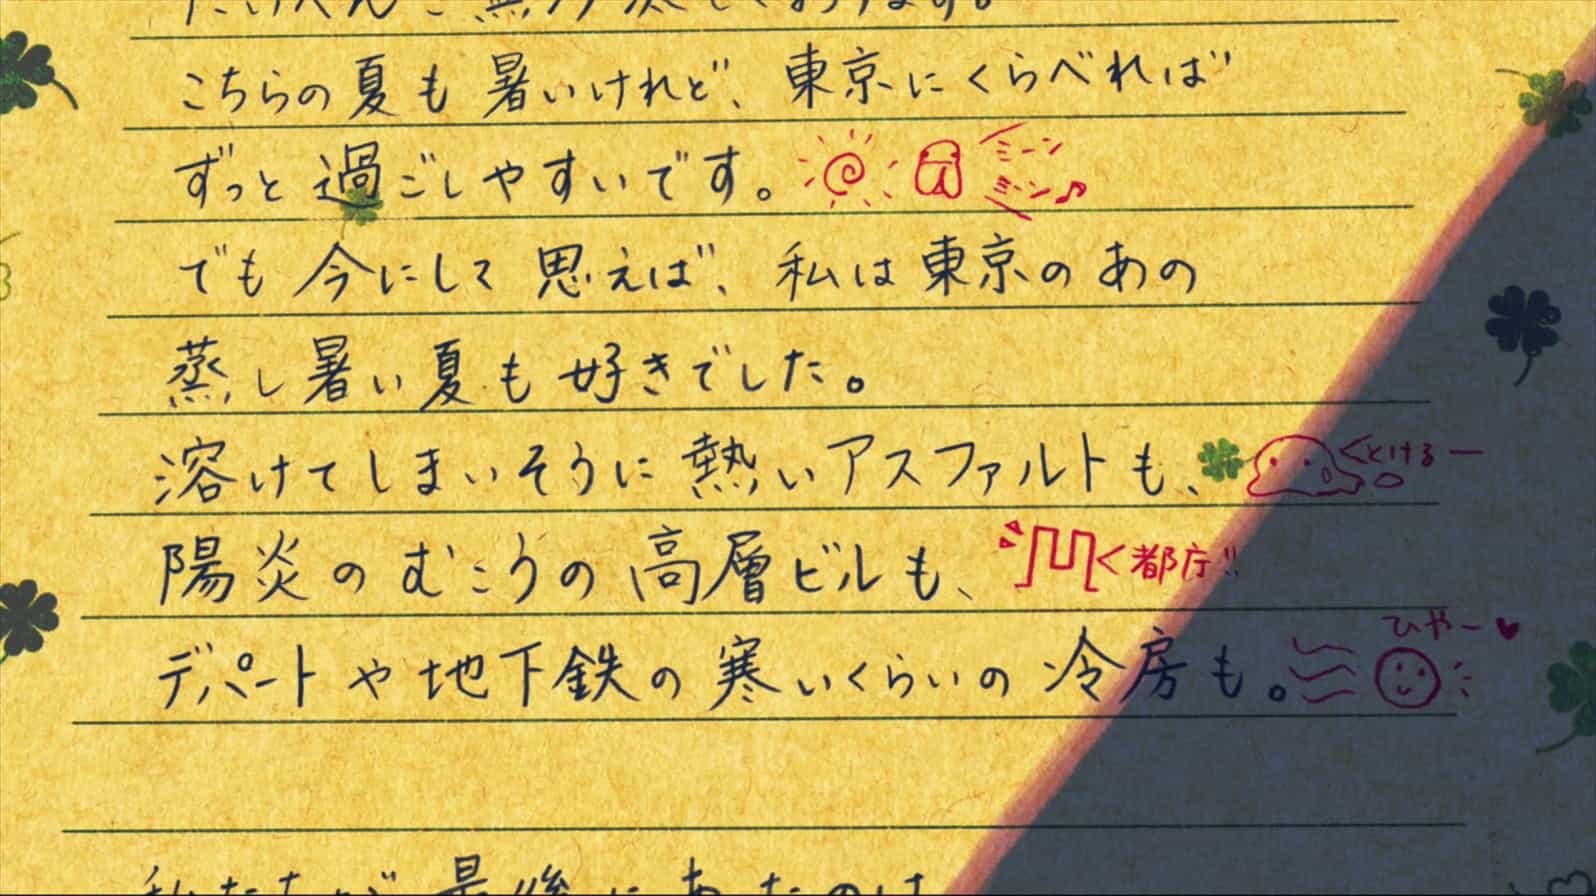 こちらの夏も暑いけれど、東京にくらべれば
ずっと過ごしやすいです。 ミーン ミーン♪
でも今にして思えば、私は東京のあの
蒸し暑い夏も好きでした。
溶けてしまいそうに熱いアスファルトも、 とけるー
陽炎のむこうの高層ビルも、 都庁!!
ひやー♥
デパートや地下鉄の寒いくらいの冷房も。
私たちが最後にあったのは